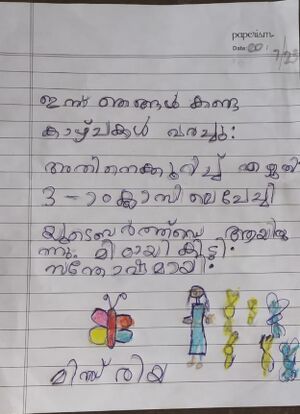 paperism
Date:
ഇന്ന് ഞങ്ങൾ കണ്ട
കാഴ്ചകൾ വരച്ചു:
അതിനെക്കുറിച്ച് എഴുതി
3-ാം ക്ലാസിലെ ചേച്ചി
യുടെ ബർത്ത്ഡേ ആയിരു
ന്നു. മിഠായി കിട്ടി.
സന്തോഷമായി.
റിയ